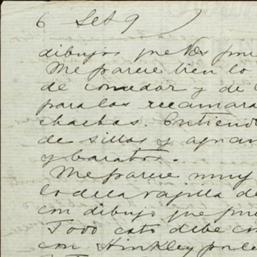 6 Set 9
dibujos que Ves pone
Me parece bien lo
de comedor y de
para las recamara
chachas. Entiendo
de sillas y
y baratos.
Me parece muy
lo de la vajilla de
con dibujo que pue
Todo esto debe con
con Hinkley por